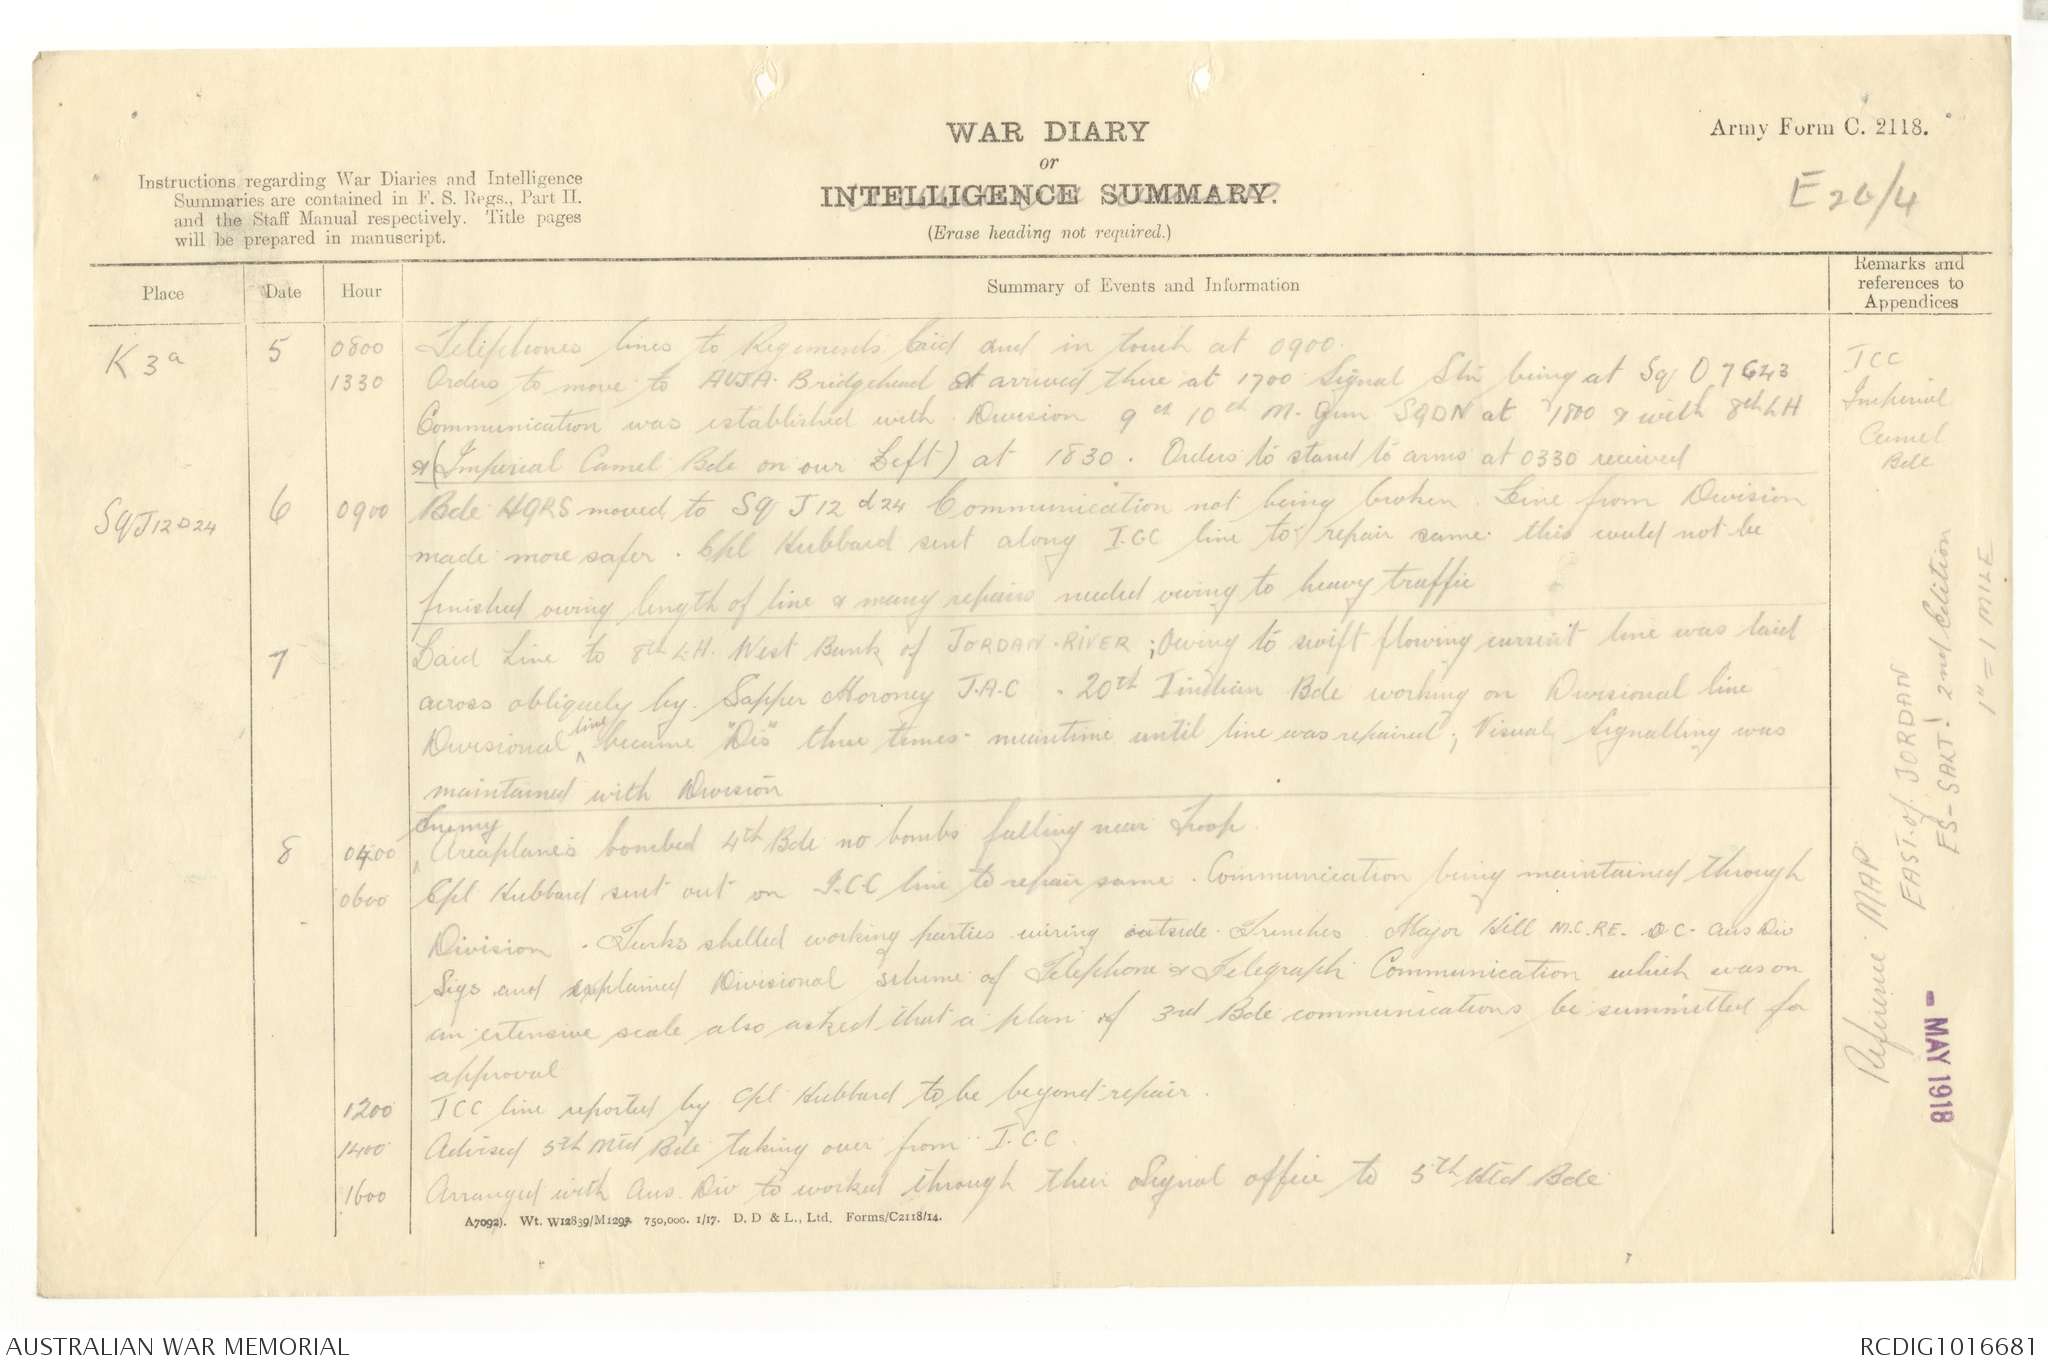 WAR DIARY
or
INTELLIGENCE SUMMARY.
(Erase heading not required.)
Army Form C. 2118.
E26/4
Instructions regarding War Diaries and Intelligence
Summaries are contained in F. S. Regs., Part II.
and the Staff Manual respectively. Title pages
will be prepared in manuscript.
Place Date Hour Summary of Events and Information Remarks and references to Appendices
K3a 5 0800 Telephones lines to Regiments laid and in touch at 0900.
1330 Orders to move to AUJA Bridgehead & arrived there at 1700 Signal Stn being at Sq O7G43
Communication was established with Division 9th 10th M. Gun SQDN at 1800 & with 8th LH
& (Imperial Camel Bde on our Left) at 1830. Orders to stand to arms at 0330 received
ICC
Imperial
Camel
Bde
SqJ12D24 6 0900 Bde HQRS moved to Sq J12 d24 Communication not being broken. Line from Division
made more safer. Cpl Hubbard sent along I.CC line to repair same. this would not be
finished owing length of line & many repairs needed owing to heavy traffic
7 Laid Line to 8th LH. West Bank of JORDAN-RIVER; Owing to swift flowing current line was laid
across obliquely by Sapper Moroney J.A.C. 20th Indian Bde working on Divisional line
Divisional line became "Dis" three times. meantime until line was repaired; Visual Signalling was
maintained with Division
8 0400 Enemy Areaplanes bombed 4th Bde no bombs falling near Troop.
0600 Cpl Hubbard sent out on I.C.C line to repair same. Communication being maintained through
Division. Turks shelled working parties wiring outside Trenches. Major Hill M.C.RE. OC. Aus Div
Sigs and explained Divisional scheme of Telephone & Telegraph Communication which was on
an extensive scale also asked that a plan of 3rd Bde communications be summitted for
approval
1200 ICC line reported by Cpl Hubbard to be beyond repair.
1400 Advised 5th Mtd Bde taking over from I.C.C.
1600 Arranged with Aus. Div to worked through their Signal office to 5th Mtd Bde
Reference MAP
EAST of JORDAN
ES-SALT. 2nd Edition
1" = 1 MILE
- MAY 1918
A7092). Wt. W12839/M1293. 750,000. 1/17. D. D & L., Ltd. Forms/C2118/14.
AUSTRALIAN WAR MEMORIAL
RCDIG1016681